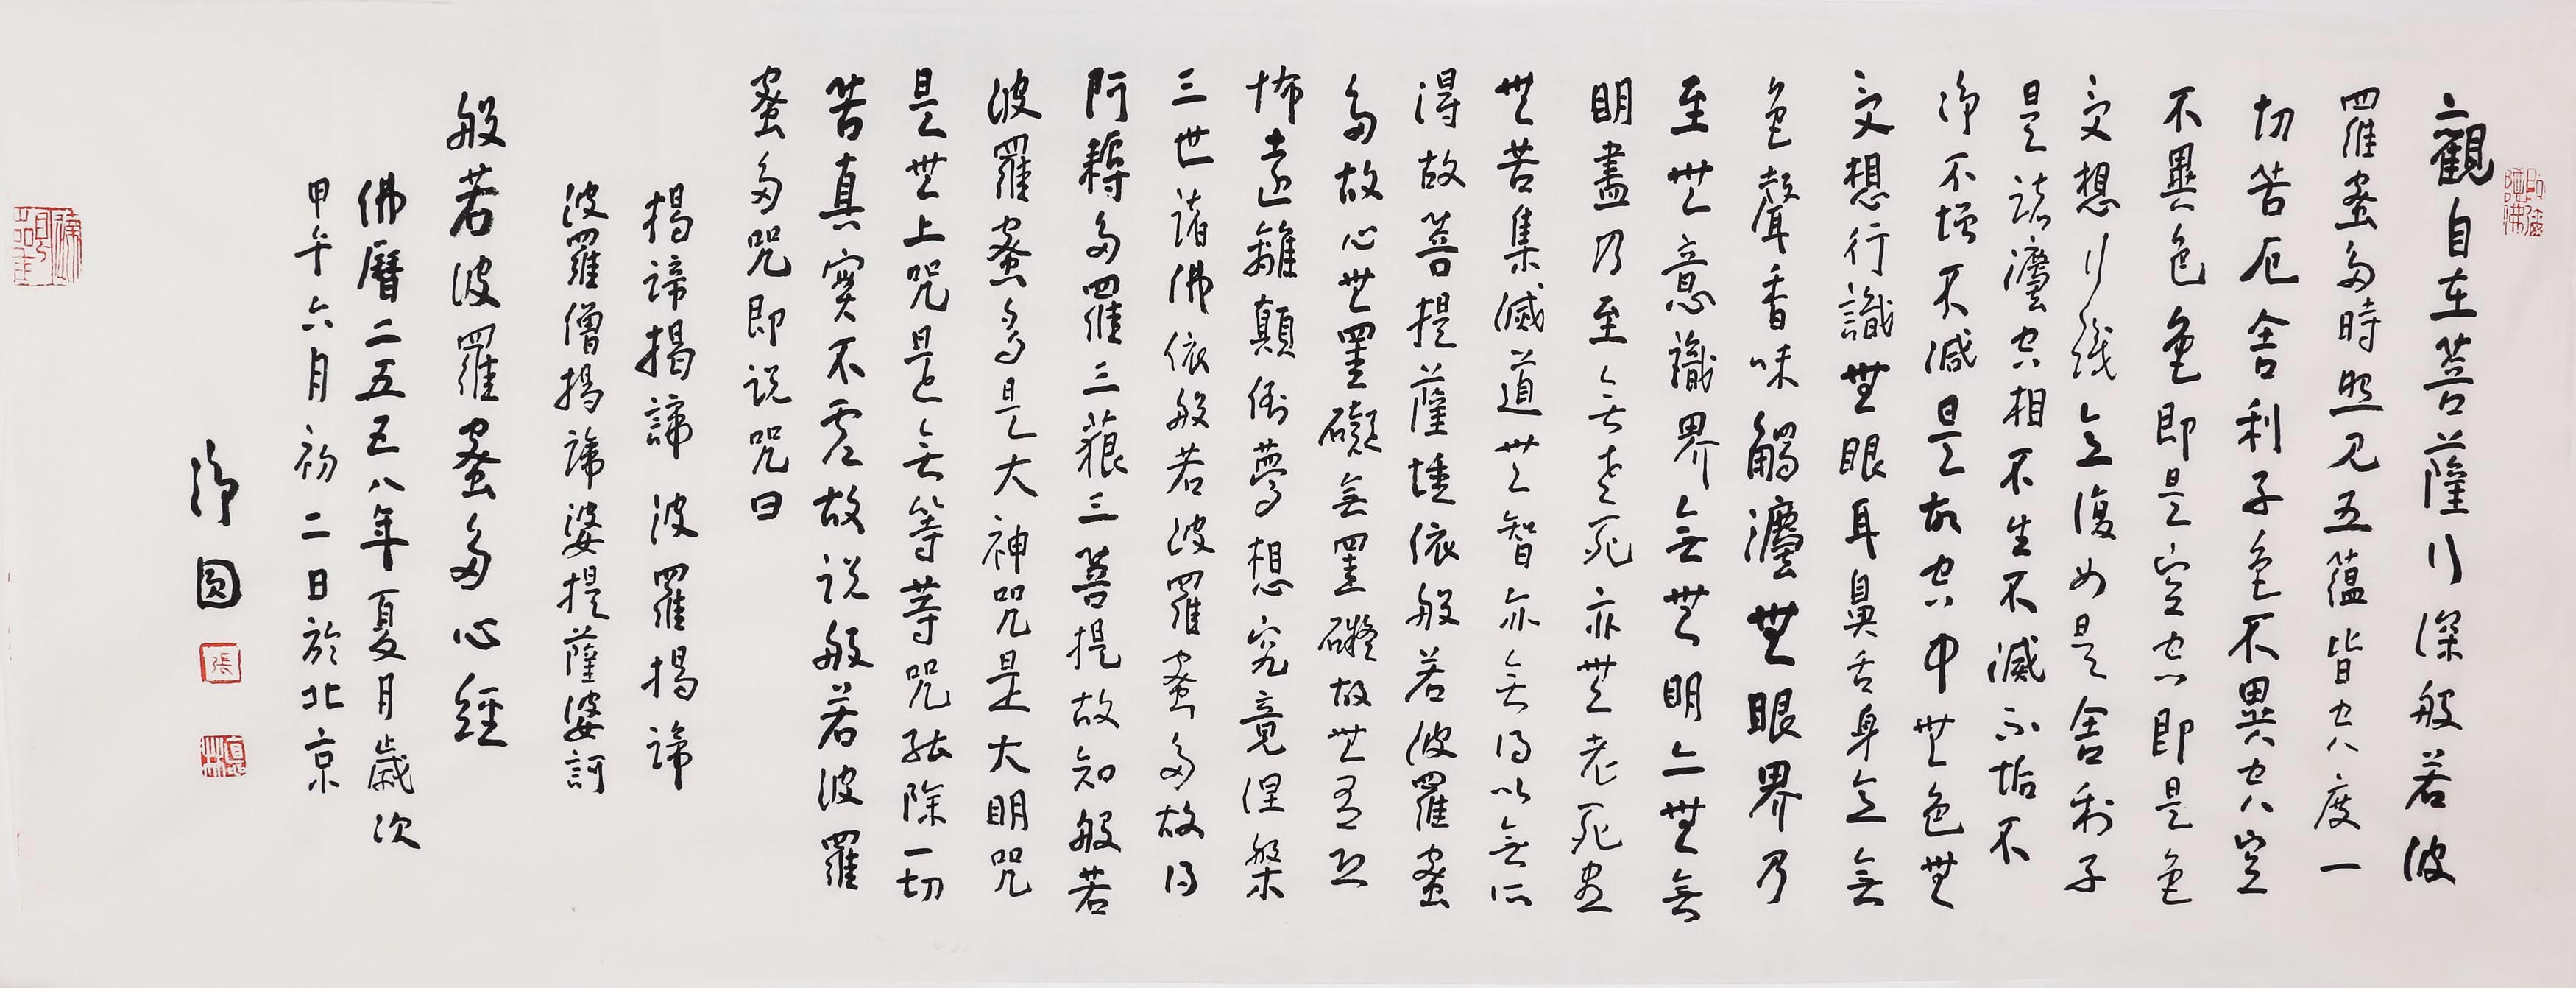 觀自在菩薩行深般若波
羅蜜多時照見五蘊皆空度一
切苦厄舍利子色不異空空
不異色色即是空空即是色
受想行識亦復如是舍利子
是諸法空相不生不滅不垢不
淨不增不減是故空中無色無
受想行識無眼耳鼻舌身意無
色聲香味觸法無眼界乃
至無意識界無無明亦無無
明盡乃至無老死亦無老死盡
無苦集滅道無智亦無得以無所
得故菩提薩埵依般若波羅蜜
多故心無罣礙無罣礙故無有恐
怖遠離顛倒夢想究竟涅槃
三世諸佛依般若波羅蜜多故得
阿耨多羅三藐三菩提故知般若
波羅蜜多是大神咒是大明咒
是無上咒是無等等咒能除一切
苦真實不虛故説般若波羅
蜜多咒即説咒曰
揭諦揭諦 波羅揭諦
波羅僧揭諦婆提薩婆訶
般若波羅蜜多心經
佛曆二五五八年夏月歲次
甲午六月初二日於北京
淨圓
張